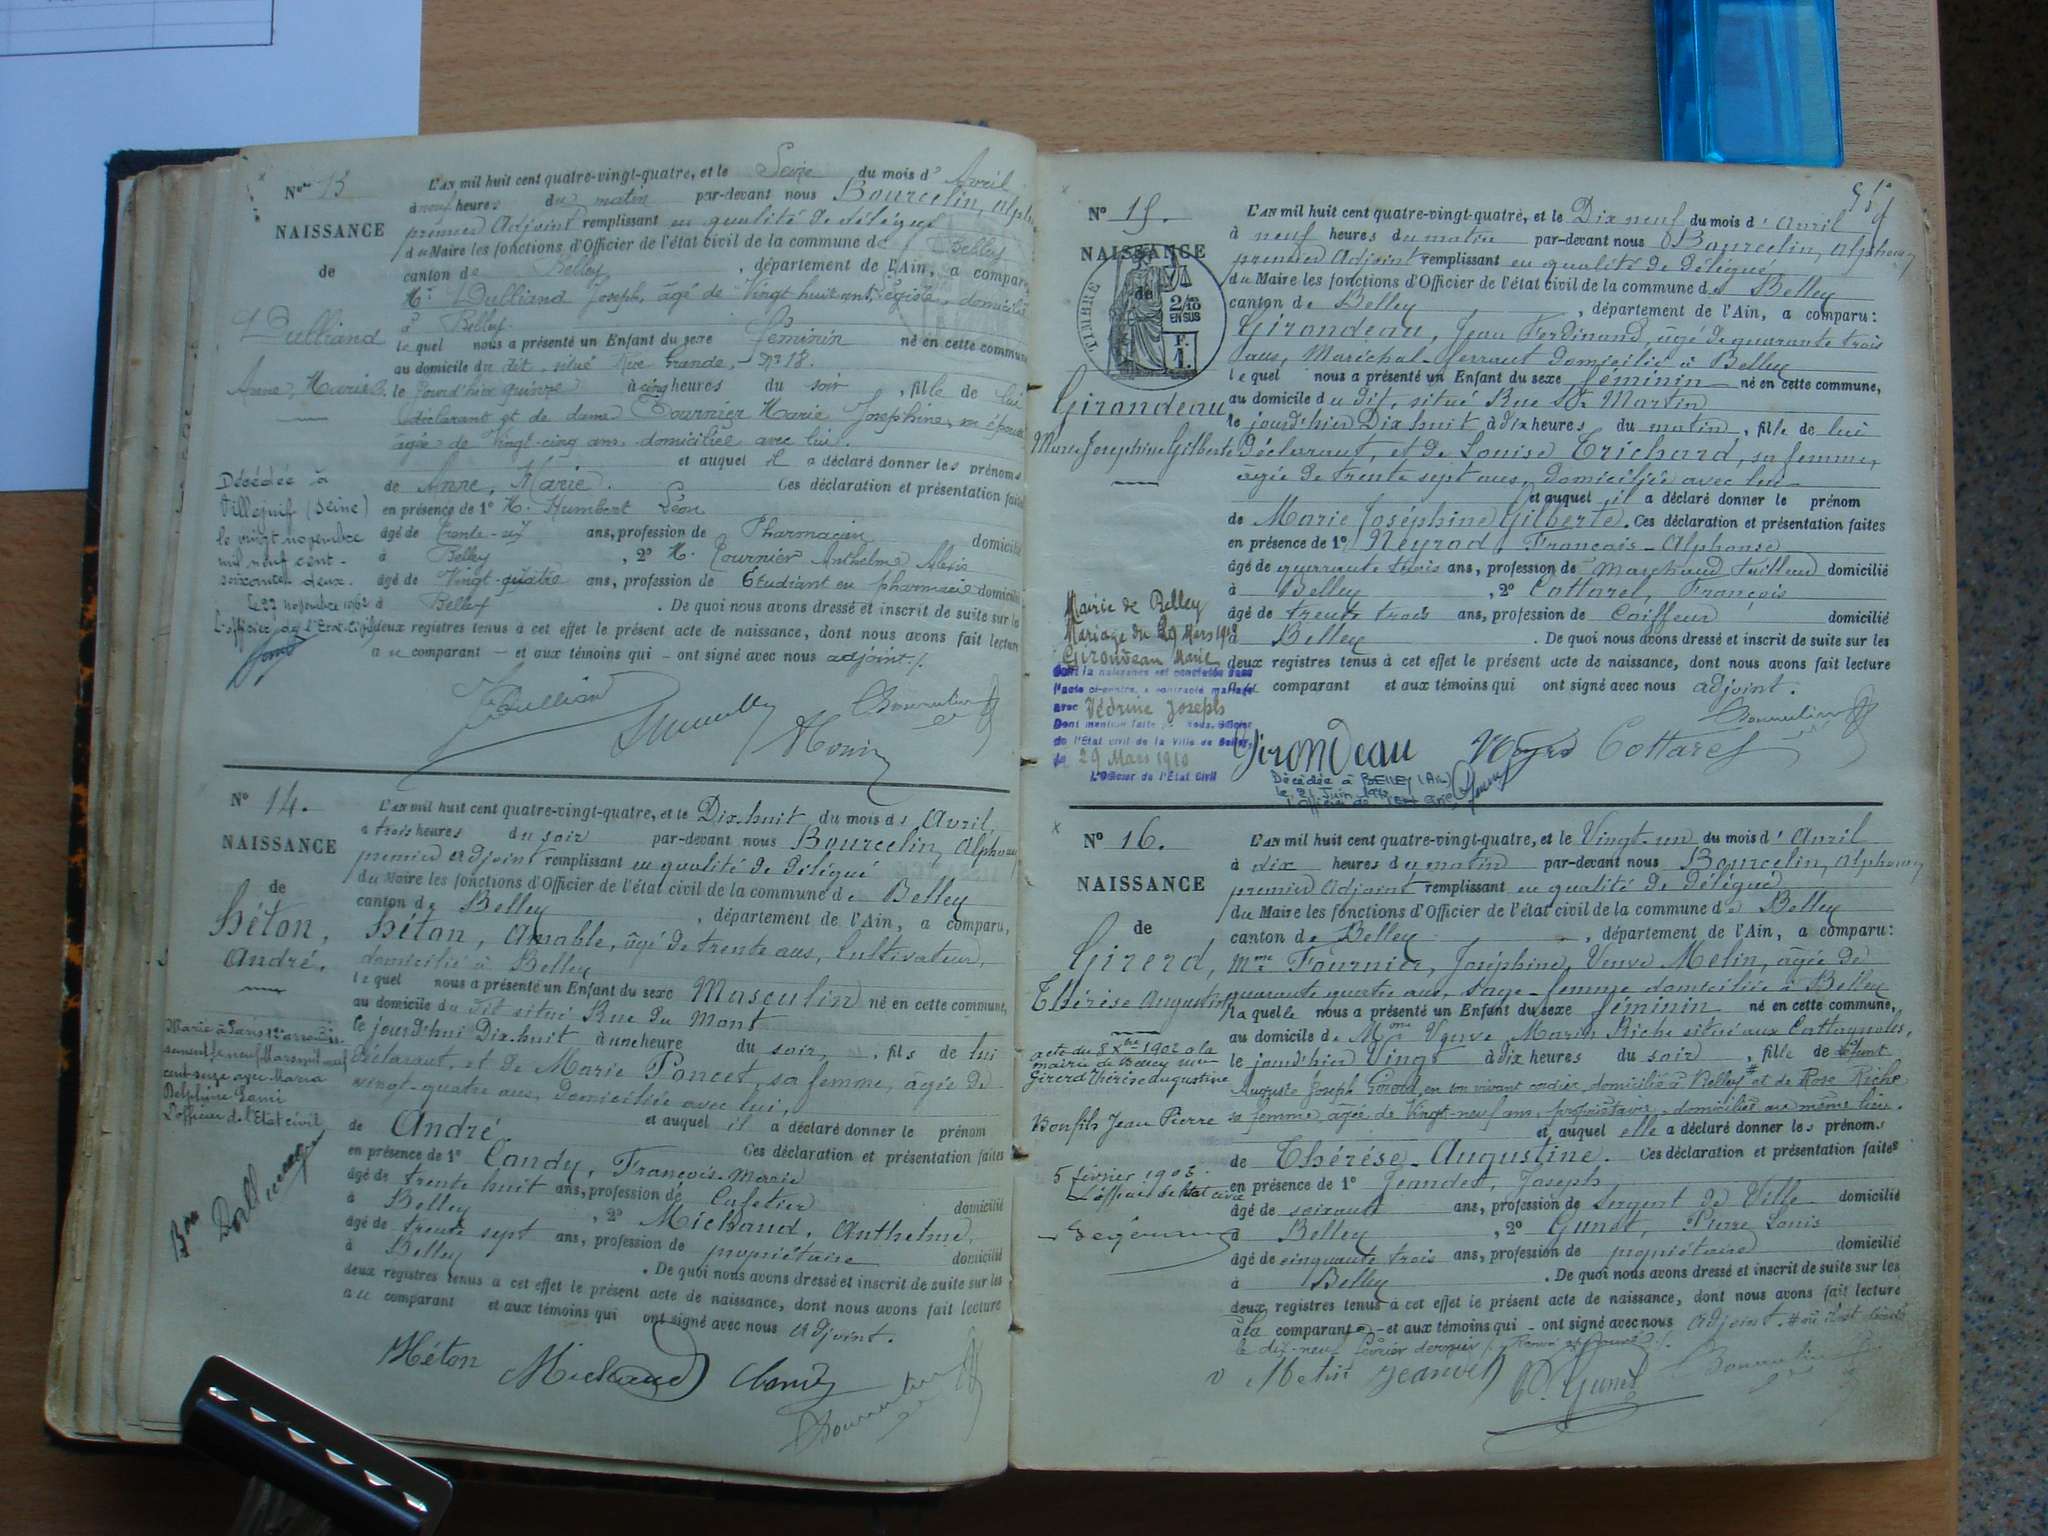 N° 13
NAISSANCE
de
Dulliand
Anne, Marie.
Décédée à
Villejuif (Seine)
le vingt novembre
mil neuf cent-
soixante-deux.
Le 27 novembre 1962
L'officier de l'Etat Civil
L'AN mil huit cent quatre-vingt-quatre, et le Seize du mois d' Avril
à neuf heures du matin par-devant nous Bourcelin, Alph
premier Adjoint remplissant en qualité de délégué
du Maire les fonctions d'Officier de l'état civil de la commune de Belley
canton de Belley, département de l'Ain, a comparu
Mr Dulliand Joseph, âgé de Vingt huit ans, domicilié
à Belley
lequel nous a présenté un Enfant du sexe Féminin né en cette commune
au domicile du dit, situé Rue Grande, N° 18.
le jour d'hier quinze à cinq heures du soir, fille de lui
déclarant et de dame Fournier Marie Joséphine, son épouse
âgée de Vingt-cinq ans domiciliée avec lui.
et auquel il a déclaré donner les prénoms
de Anne, Marie. Ces déclaration et présentation faites
en présence de 1° M. Humbert Léon
âgé de trente-six ans, profession de Pharmacien domicilié
à Belley, 2° M. Fournier Anthelme Alexis
âgé de Vingt-quatre ans, profession de Etudiant en pharmacie domicilié
à Belley. De quoi nous avons dressé et inscrit de suite sur les
deux registres tenus à cet effet le présent acte de naissance, dont nous avons fait lecture
au comparant - et aux témoins qui - ont signé avec nous adjoint./.
Dulliand
N° 14.
NAISSANCE
de
Héton,
André.
Marié à Paris 12e arrondis-
sement le neuf Mars mil neuf
cent onze avec Maria
Delphine Lami
L'officier de l'Etat civil
L'AN mil huit cent quatre-vingt-quatre, et le Dix-huit du mois d' Avril
à trois heures du soir par-devant nous Bourcelin, Alphonse
premier adjoint remplissant en qualité de délégué
du Maire les fonctions d'Officier de l'état civil de la commune de Belley
canton de Belley, département de l'Ain, a comparu,
Héton, Amable, âgé de trente ans, Cultivateur,
domicilié à Belley
lequel nous a présenté un Enfant du sexe Masculin né en cette commune,
au domicile du dit situé Rue du Mont
le jourd'hui Dix-huit à une heure du soir, fils de lui
déclarant, et de Marie Poncet, sa femme, âgée de
vingt-quatre ans, domiciliée avec lui,
et auquel il a déclaré donner le prénom
de André. Ces déclaration et présentation faites
en présence de 1° Candy, François-Marie
âgé de trente huit ans, profession de Cafetier domicilié
à Belley, 2° Michaud, Anthelme,
âgé de trente sept ans, profession de propriétaire domicilié
à Belley. De quoi nous avons dressé et inscrit de suite sur les
deux registres tenus à cet effet le présent acte de naissance, dont nous avons fait lecture
au comparant et aux témoins qui ont signé avec nous adjoint.
Héton Michaud Candy
N° 15.
NAISSANCE
de
TIMBRE
2/10
EN SUS
F.
1.
Girondeau
Marie Joséphine Gilberte
Mairie de Belley
Mariage du 29 Mars 1910
Girondeau Marie
dont la naissance est constatée dans
l'acte ci-contre, a contracté mariage
avec Védrine Joseph
Dont mention faite, Nous, Officier
de l'Etat civil de la Ville de Belley,
le 29 Mars 1910
L'Officier de l'Etat Civil
L'AN mil huit cent quatre-vingt-quatre, et le Dix neuf du mois d' Avril
à neuf heures du matin par-devant nous Bourcelin, Alphonse
premier Adjoint remplissant en qualité de délégué
du Maire les fonctions d'Officier de l'état civil de la commune de Belley
canton de Belley, département de l'Ain, a comparu:
Girondeau, Jean Ferdinand, âgé de quarante trois
ans, Maréchal-ferrant domicilié à Belley
lequel nous a présenté un Enfant du sexe féminin né en cette commune,
au domicile du dit, situé Rue St Martin
le jourd'hier Dix huit à dix heures du matin, fille de lui
déclarant, et de Louise Trichard, sa femme,
âgée de trente sept ans, domiciliée avec lui
et auquel il a déclaré donner le prénom
de Marie Joséphine Gilberte. Ces déclaration et présentation faites
en présence de 1° Neyrod, François-Alphonse
âgé de quarante trois ans, profession de Marchand tailleur domicilié
à Belley, 2° Cottarel, François
âgé de trente trois ans, profession de Coiffeur domicilié
à Belley. De quoi nous avons dressé et inscrit de suite sur les
deux registres tenus à cet effet le présent acte de naissance, dont nous avons fait lecture
au comparant et aux témoins qui ont signé avec nous adjoint.
Girondeau Cottarel
Décédée à BELLEY (Ain)
le 21 Juin
L'Officier de l'Etat Civil
N° 16.
NAISSANCE
de
Girerd,
Thérèse Augustine
acte du 8 Xbre 1902 à la
mairie de Belley
Girerd Thérèse Augustine
Bonfils Jean Pierre
5 février 1903.
L'officier de l'état civil
L'AN mil huit cent quatre-vingt-quatre, et le Vingt-un du mois d' Avril
à dix heures du matin par-devant nous Bourcelin, Alphonse
premier Adjoint remplissant en qualité de délégué
du Maire les fonctions d'Officier de l'état civil de la commune de Belley
canton de Belley, département de l'Ain, a comparu:
Mme Fournier, Joséphine, Veuve Melin, âgée de
quarante quatre ans, Sage-femme domiciliée à Belley
laquelle nous a présenté un Enfant du sexe féminin né en cette commune,
au domicile de Mme Veuve Marin Riche situé aux Cattagnoles,
le jourd'hier Vingt à dix heures du soir, fille de défunt
Auguste Joseph Girerd, en son vivant cordier, domicilié à Belley # et de Rose Riche
sa femme, âgée de Vingt-neuf ans, propriétaire, domiciliée au même lieu.
et auquel elle a déclaré donner les prénoms
de Thérèse-Augustine. Ces déclaration et présentation faites
en présence de 1° Jeandet, Joseph
âgé de soixante ans, profession de Sergent de Ville domicilié
à Belley, 2° Gunet, Pierre Louis
âgé de cinquante trois ans, profession de propriétaire domicilié
à Belley. De quoi nous avons dressé et inscrit de suite sur les
deux registres tenus à cet effet le présent acte de naissance, dont nous avons fait lecture
à la comparante - et aux témoins qui - ont signé avec nous adjoint. # où il est décédé
le dix-neuf Février dernier /.
Ve Melin Jeandet P. Gunet